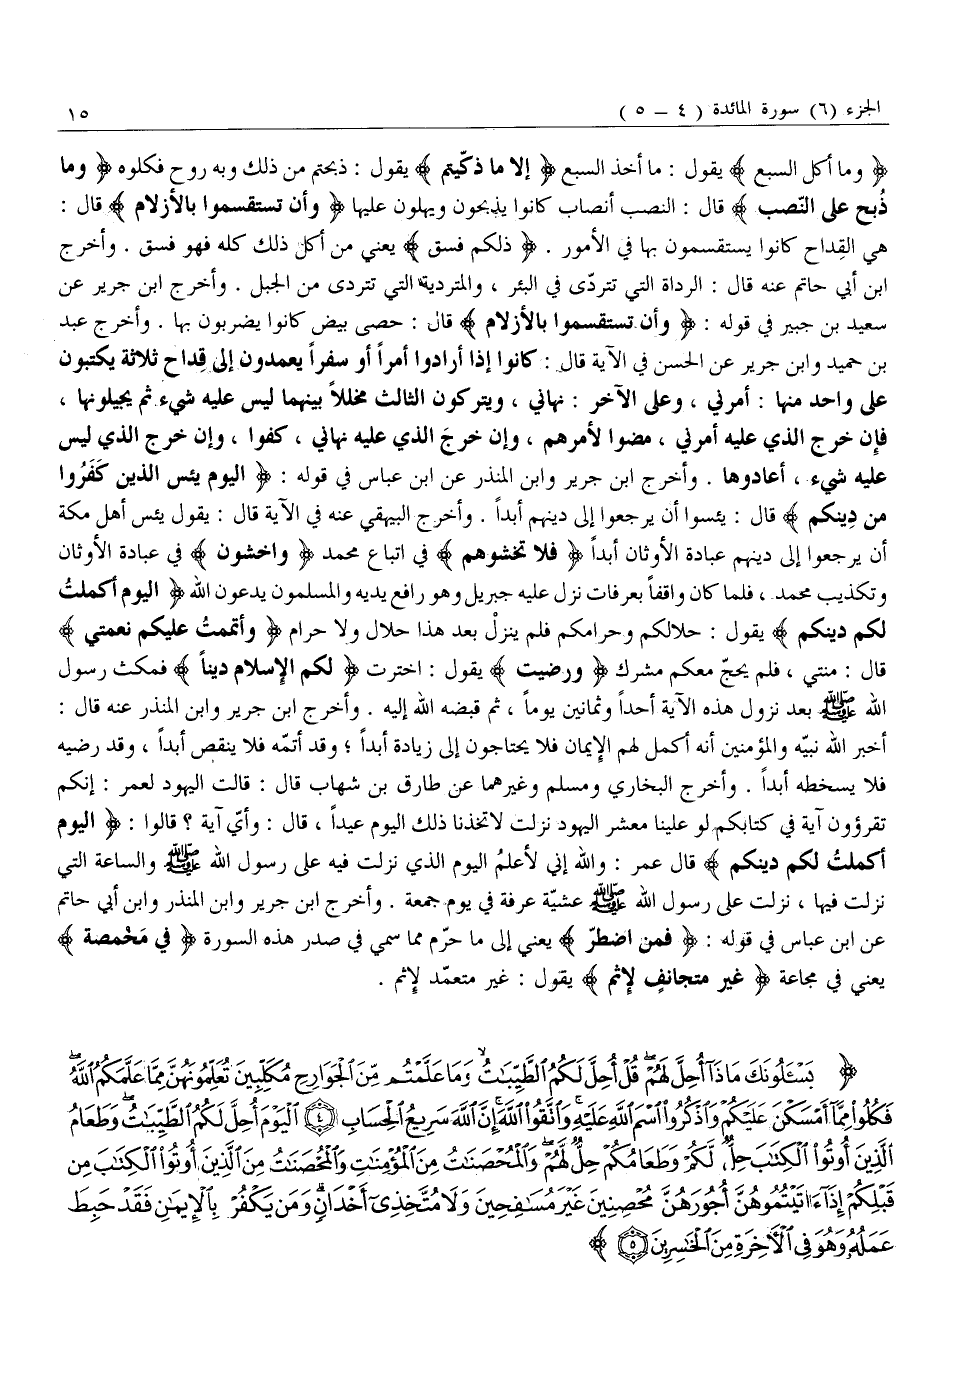 الجزء (٦) سورة المائدة ( ٤ – ٥ ) ١٥
﴿ وما أكل السبع ﴾ يقول : ما أخذ السبع ﴿ إلا ما ذكّيتم ﴾ يقول : ذبحتم من ذلك وبه روح فكلوه ﴿ وما
ذُبح على النّصب ﴾ قال : النصب أنصاب كانوا يذبحون ويهلون عليها ﴿ وأن تستقسموا بالأزلام ﴾ قال :
هي القِداح كانوا يستقسمون بها في الأمور . ﴿ ذلكم فسق ﴾ يعني من أكل ذلك كله فهو فسق . وأخرج
ابن أبي حاتم عنه قال : الرداة التي تتردّى في البئر ، والمتردية التي تتردى من الجبل . وأخرج ابن جرير عن
سعيد بن جبير في قوله : ﴿ وأن تستقسموا بالأزلام ﴾ قال : حصى بيض كانوا يضربون بها . وأخرج عبد
بن حميد وابن جرير عن الحسن في الآية قال : كانوا إذا أرادوا أمراً أو سفراً يعمدون إلى قِداح ثلاثة يكتبون
على واحد منها : أمرني ، وعلى الآخر : نهاني ، ويتركون الثالث مخللاً بينهما ليس عليه شيء ثم يجيلونها ،
فإن خرج الذي عليه أمرني ، مضوا لأمرهم ، وإن خرجَ الذي عليه نهاني ، كفوا ، وإن خرج الذي ليس
عليه شيء ، أعادوها . وأخرج ابن جرير وابن المنذر عن ابن عباس في قوله : ﴿ اليوم يئس الذين كَفَرُوا
من دِينكم ﴾ قال : يئسوا أن يرجعوا إلى دينهم أبداً . وأخرج البيهقي عنه في الآية قال : يقول يئس أهل مكة
أن يرجعوا إلى دينهم عبادة الأوثان أبداً ﴿ فلا تخشوهم ﴾ في اتباع محمد ﴿ واخشون ﴾ في عبادة الأوثان
وتكذيب محمد ، فلما كان واقفاً بعرفات نزل عليه جبريل وهو رافع يديه والمسلمون يدعون الله ﴿ اليوم أكملتُ
لكم دينكم ﴾ يقول : حلالكم وحرامكم فلم ينزلْ بعد هذا حلال ولا حرام ﴿ وأتممتُ عليكم نعمتي ﴾
قال : منتي ، فلم يحجّ معكم مشرك ﴿ ورضيت ﴾ يقول : اخترت ﴿ لكم الإسلام ديناً ﴾ فمكث رسول
الله ﷺ بعد نزول هذه الآية أحداً وثمانين يوماً ، ثم قبضه الله إليه . وأخرج ابن جرير وابن المنذر عنه قال :
أخبر الله نبيّه والمؤمنين أنه أكمل لهم الإيمان فلا يحتاجون إلى زيادة أبداً ؛ وقد أتمّه فلا ينقص أبداً ، وقد رضيه
فلا يسخطه أبداً . وأخرج البخاري ومسلم وغيرهما عن طارق بن شهاب قال : قالت اليهود لعمر : إنكم
تقرؤون آية في كتابكم لو علينا معشر اليهود نزلت لاتخذنا ذلك اليوم عيداً ، قال : وأيّ آية ؟ قالوا : ﴿ اليوم
أكملتُ لكم دينكم ﴾ قال عمر : والله إني لأعلمُ اليوم الذي نزلت فيه على رسول الله ﷺ والساعة التي
نزلت فيها ، نزلت على رسول الله ﷺ عشيّة عرفة في يوم جمعة . وأخرج ابن جرير وابن المنذر وابن أبي حاتم
عن ابن عباس في قوله : ﴿ فمن اضطرّ ﴾ يعني إلى ما حرّم مما سمي في صدر هذه السورة ﴿ في مَخْمصة ﴾
يعني في مجاعة ﴿ غير متجانفٍ لإثم ﴾ يقول : غير متعمّد لإثم .
﴿ يَسْـَٔلُونَكَ مَاذَآ أُحِلَّ لَهُمْ ۖ قُلْ أُحِلَّ لَكُمُ ٱلطَّيِّبَٰتُ ۙ وَمَا عَلَّمْتُم مِّنَ ٱلْجَوَارِحِ مُكَلِّبِينَ تُعَلِّمُونَهُنَّ مِمَّا عَلَّمَكُمُ ٱللَّهُ ۖ
فَكُلُوا۟ مِمَّآ أَمْسَكْنَ عَلَيْكُمْ وَٱذْكُرُوا۟ ٱسْمَ ٱللَّهِ عَلَيْهِ ۖ وَٱتَّقُوا۟ ٱللَّهَ ۚ إِنَّ ٱللَّهَ سَرِيعُ ٱلْحِسَابِ ۝٤ ٱلْيَوْمَ أُحِلَّ لَكُمُ ٱلطَّيِّبَٰتُ ۖ وَطَعَامُ
ٱلَّذِينَ أُوتُوا۟ ٱلْكِتَٰبَ حِلٌّ لَّكُمْ وَطَعَامُكُمْ حِلٌّ لَّهُمْ ۖ وَٱلْمُحْصَنَٰتُ مِنَ ٱلْمُؤْمِنَٰتِ وَٱلْمُحْصَنَٰتُ مِنَ ٱلَّذِينَ أُوتُوا۟ ٱلْكِتَٰبَ مِن
قَبْلِكُمْ إِذَآ ءَاتَيْتُمُوهُنَّ أُجُورَهُنَّ مُحْصِنِينَ غَيْرَ مُسَٰفِحِينَ وَلَا مُتَّخِذِىٓ أَخْدَانٍ ۗ وَمَن يَكْفُرْ بِٱلْإِيمَٰنِ فَقَدْ حَبِطَ
عَمَلُهُۥ وَهُوَ فِى ٱلْءَاخِرَةِ مِنَ ٱلْخَٰسِرِينَ ۝٥ ﴾